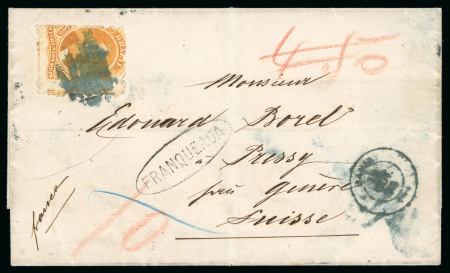 4.50
Monsieur
Edouard Borel
à
FRANQUEADA
Pressy
près Genève
Suisse
franca
10